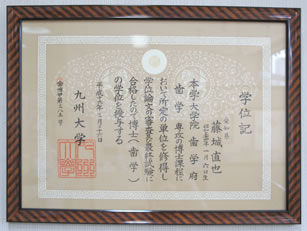 学位記
愛知県
藤城直也
本学大学院歯学府
歯学専攻の博士課程に
おいて所定の単位を修得し
学位論文の審査及び最終試験に
合格したので博士(歯学)
の学位を授与する
九州大学